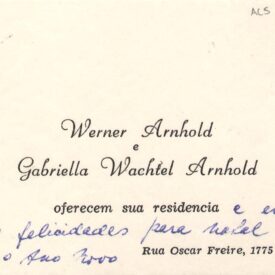 ALS
Werner Arnhold
e
Gabriella Wachtel Arnhold
oferecem sua residencia e
felicidades para natal
o Ano Novo Rua Oscar Freire, 1775